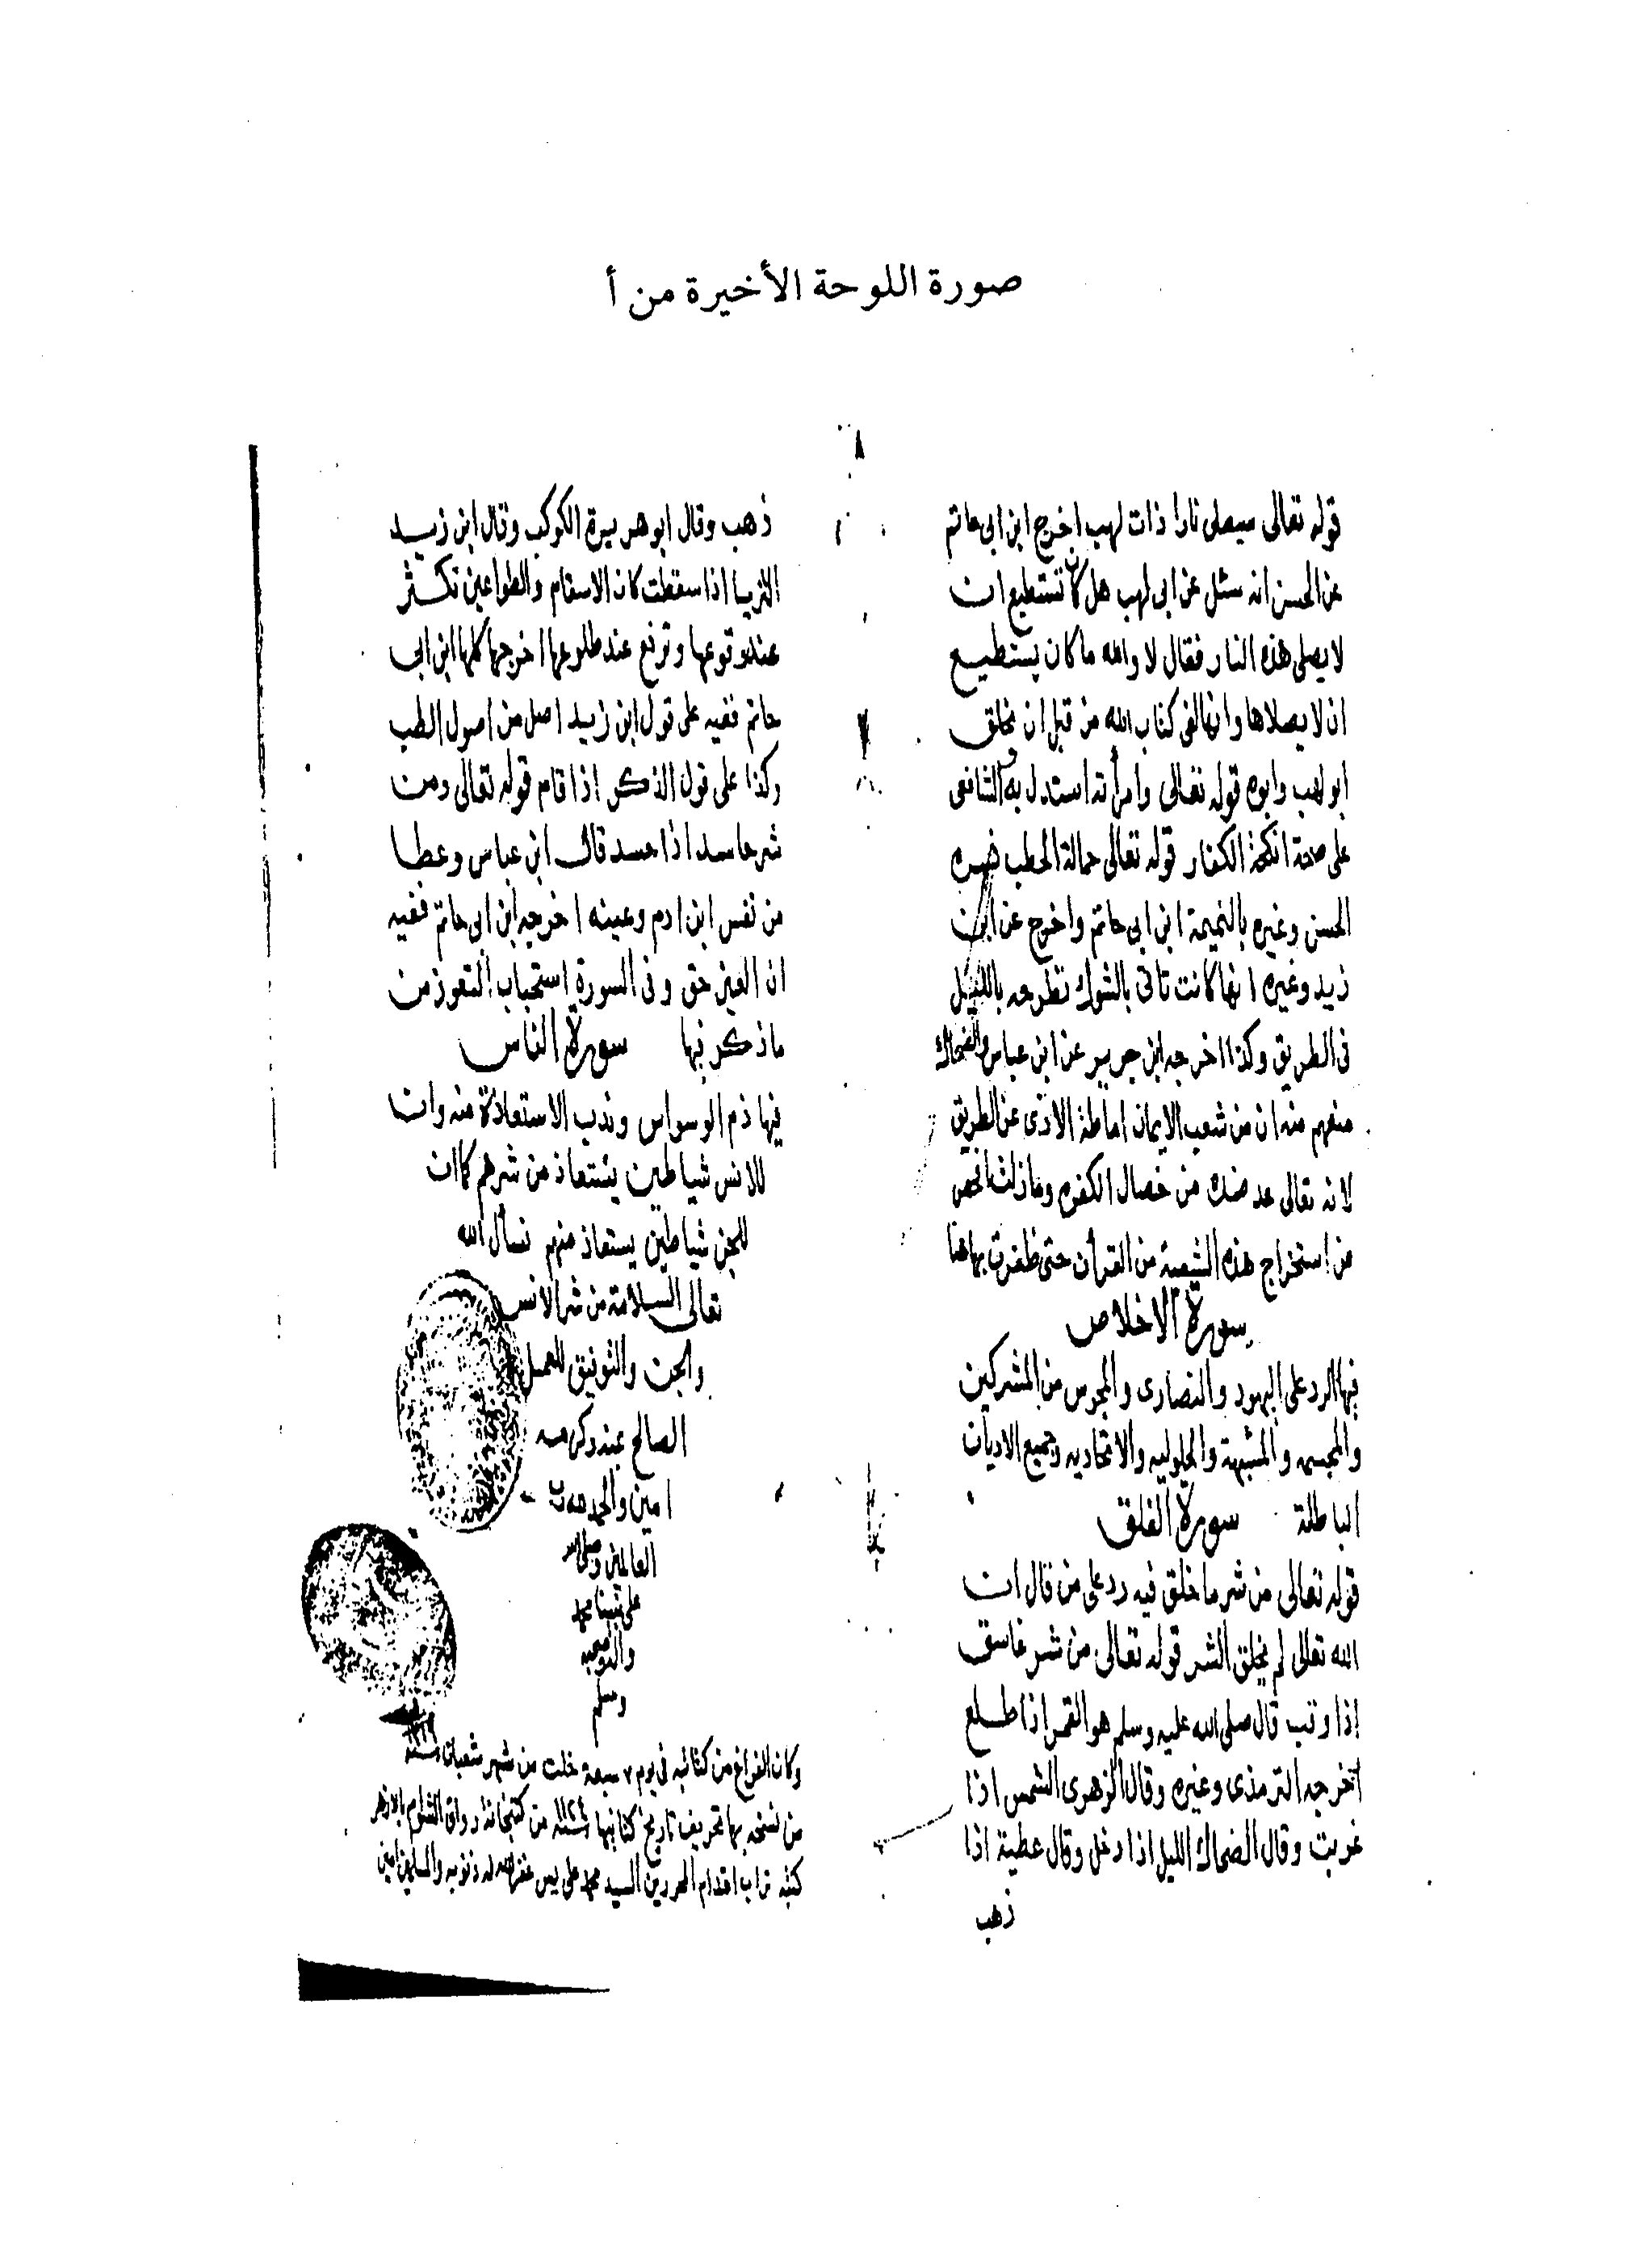 صورة اللوحة الأخيرة من أ
قوله تعالى سيصلى نارا ذات لهب اخرج ابن ابى حاتم
عن الحسن انه سئل عن ابى لهب هل كان تستطيع ان
لا يصلى هذه النار فقال لا والله ما كان يستطيع
ان لا يصلاها وانها لفى كتاب الله من قبل ان يخلق
ابو لهب وابوه قوله تعالى وامرأته استدل به الشافعى
على صحة انكحة الكفار قوله تعالى حمالة الحطب فسره
الحسن وغيره بالنميمة ابن ابى حاتم واخرج عن ابن
زيد وغيره انها كانت تاتى بالشوك تطرحه بالليل
فى الطريق وكذا اخرجه ابن جرير عن ابن عباس والضحاك
منفهم منه ان من شعب الايمان اماطة الاذى عن الطريق
لانه تعالى عد ضده من خصال الكفره وما زلت افحص
من استخراج هذه الشعبة من القرأن حتى ظفرت بها هنا
سورة الاخلاص
فيها الرد على اليهود والنصارى والمجوس من المشركين
والمجسمه والمشبهة والحلوليه والاتحاديه وجميع الاديان
الباطلة سورة الفلق
قوله تعالى من شر ما خلق فيه رد على من قال ان
الله تعالى لم يخلق الشر قوله تعالى من شر غاسق
إذا وقب قال صلى الله عليه وسلم هو القمر اذا طلع
اخرجه الترمذى وغيره وقال الزهرى الشمس اذا
غربت وقال الضحاك الليل اذا دخل وقال عطية اذا
ذهب
ذهب وقال ابو هريرة الكوكب وقال ابن زيد
الثريا اذا سقطت كان الاسقام والطواعين تكثر
عند وقوعها وترفع عند طلوعها اخرجها كلها ابن ابى
حاتم ففيه على قول ابن زيد اصل من اصول الطب
وكذا على قول الذكر اذا قام قوله تعالى ومن
شر حاسد اذا حسد قال ابن عباس وعطا
من نفس ابن ادم وعينه اخرجه ابن ابى حاتم ففيه
ان العين حق وفى السورة استحباب التعوذ من
ما ذكر فيها سورة الناس
فيها ذم الوسواس وندب الاستعاذة منه وان
للانس شياطين يستعاذ من شرهم كما ان
للجن شياطين يستعاذ منهم نسأل الله
تعالى السلامة من شر الانس
والجن والتوفيق للعمل
الصالح بمنه وكرمه
امين والحمد لله رب
العالمين وصلى الله
على نبينا محمد
واله وصحبه
وسلم
وكان الفراغ من كتابته فى يوم ٧ سبعة خلت من شهر شعبان
من نسخه بها تحريف تاريخ كتابتها من كتبخانة رواق الشوام بالازهر
كتبه تراب اقدام المحررين السيد محمد على يس غفر الله له ذنوبه والمسلمين امين